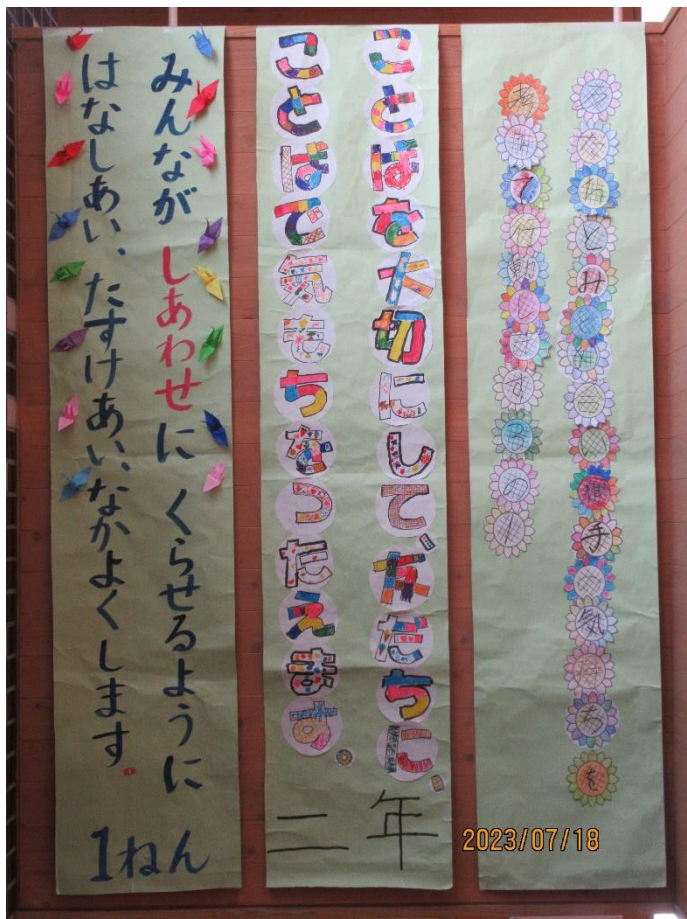 とみ 相手の気持ちを
考えて行動します
ことばを大切にして、友だちに、
ことばで気もちをつたえます。
二年
みんなが しあわせに くらせるように
はなしあい、たすけあい、なかよくします。
1ねん
2023/07/18